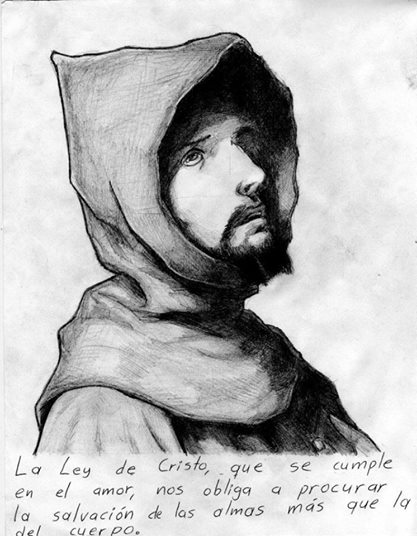 La Ley de Cristo, que se cumple
en el amor, nos obliga a procurar
la salvación de las almas más que la
del cuerpo.